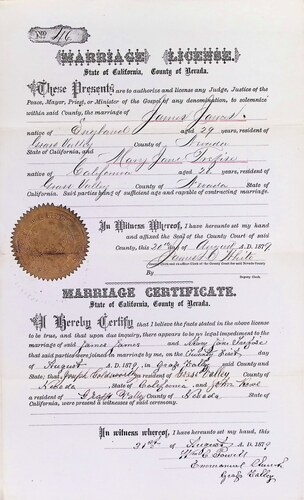 No 76
MARRIAGE LICENSE.
State of California, County of Nevada.
These Presents are to authorize and license any Judge, Justice of the
Peace, Mayor, Priest, or Minister of the Gospel of any denomination, to solemnize
within said County, the marriage of James James
native of England aged 29 years, resident of
Grass Valley County of Nevada
State of California, and Mary Jane
native of California aged 21 years, resident of
Grass Valley County of Nevada State of
California. Said parties being of sufficient age and capable of contracting marriage.
In Witness Whereof, I have hereunto set my hand
and affixed the Seal of the County Court of said
County, this day of August A.D. 1879
James White
County Clerk and ex-officio Clerk of the County Court for said Nevada County
By
Deputy Clerk.
MARRIAGE CERTIFICATE.
State of California, County of Nevada.
I Hereby Certify that I believe the facts stated in the above license
to be true, and that upon due inquiry, there appears to be no legal impediment to the
marriage of said James James and Mary Jane
that said parties were joined in marriage by me, on the Twenty First day of
August A.D. 1879, in Grass Valley said County and
State; that Joseph Goldsworthy resident of Grass Valley County of
Nevada State of California and John
a resident of Grass Valley County of Nevada State of
California, were present as witnesses of said ceremony.
In witness whereof, I have hereunto set my hand, this
21st of August A.D. 1879
Wm C Powell
Emmanuel Church
Grass Valley